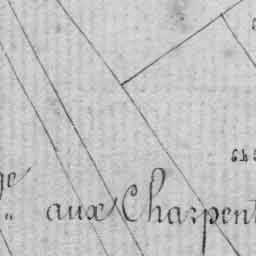 ge
aux Charpent